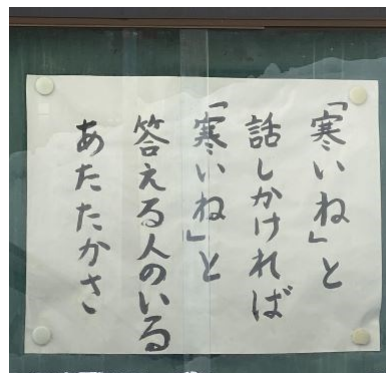 「寒いね」と
話しかければ
「寒いね」と
答える人のいる
あたたかさ